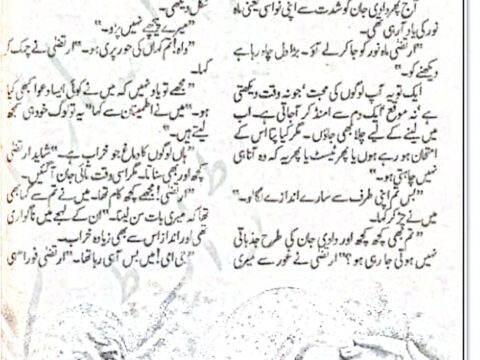 آج پھر دادی جان کو شدت سے اپنی نواسی یعنی ماہ
نور کی یاد آ رہی تھی۔
"ارتضیٰ ماہ نور کو جا کر لے آؤ۔ بڑا دل چاہ رہا ہے
دیکھنے کو۔"
ایک تو یہ آپ لوگوں کی محبت، جو نہ وقت دیکھتی
ہے نہ موقع ایک دم سے امنڈ کر آ جاتی ہے۔ اب
میں لینے کے لیے چلا بھی جاؤں۔ مگر کیا پتا اس کے
امتحان ہو رہے ہوں یا پھر ٹیسٹ یا پھر یہ کہ وہ آنا ہی
نہیں چاہتی ہو۔"
"بس تم اپنی طرف سے سارے اندازے لگا لو۔"
میں نے چڑ کر کہا۔
"تم بھی کچھ کچھ اور دادی جان کی طرح جذباتی
نہیں ہوتی جا رہی ہو؟" ارتضیٰ نے غور سے میری
شکل دیکھی۔
"میرے پیچھے نہیں پڑو۔"
"واہ! تم کہاں کی حور پری ہو۔" ارتضیٰ نے چمک کر
کہا۔
"مجھے تو یاد نہیں کہ میں نے کوئی ایسا دعوا کبھی کیا
ہو۔" میں نے اطمینان سے کہا "یہ تو لوگ خود ہی سمجھ
لیتے ہیں۔"
"ہاں لوگوں کا دماغ جو خراب ہے۔" شاید ارتضیٰ
کچھ اور بھی سناتا۔ مگر اسی وقت مائی جان آ گئیں۔
"ارتضیٰ! مجھے کچھ کام تھا۔ میں نے تم سے کہا بھی
تھا کہ میری بات سن لینا۔" ان کے لہجے میں ناگواری
تھی اور انداز اس سے بھی زیادہ خراب۔
"جی امی! میں بس آ ہی رہا تھا۔" ارتضیٰ فورا" ہی